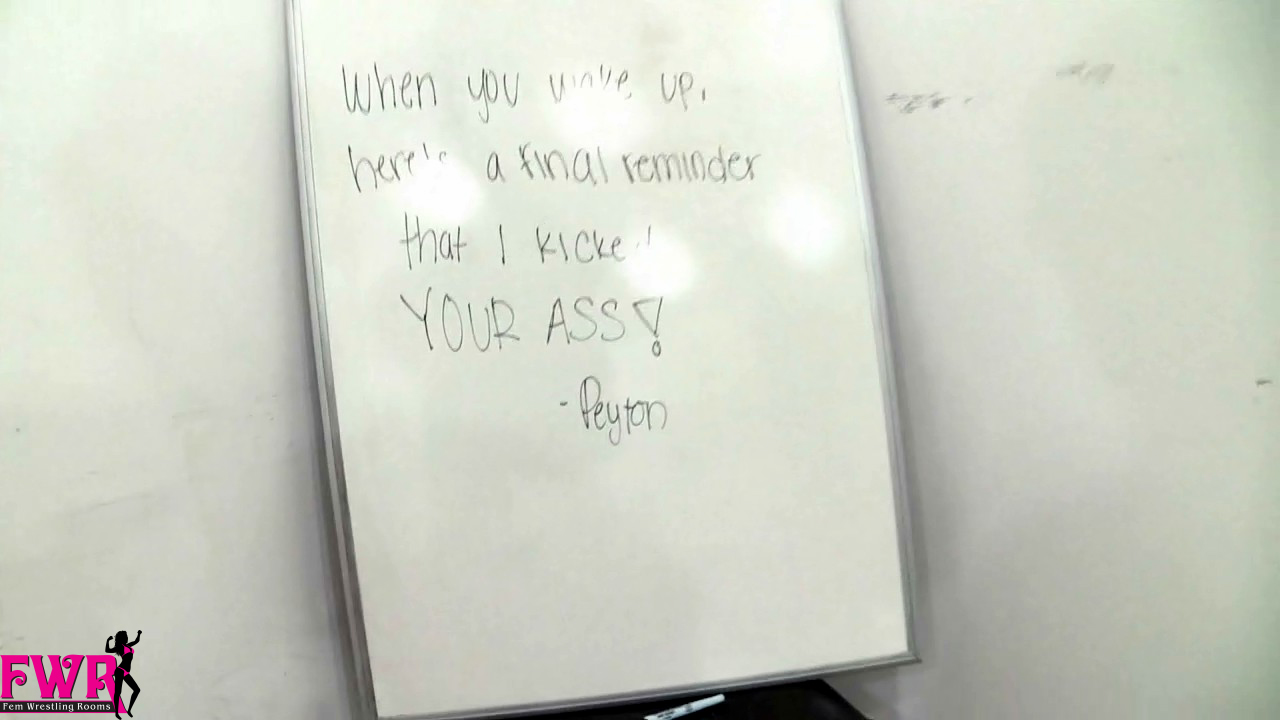 When you wake up,
here's a final reminder
that I kicked
YOUR ASS!
- Peyton
FWR
Fem Wrestling Rooms